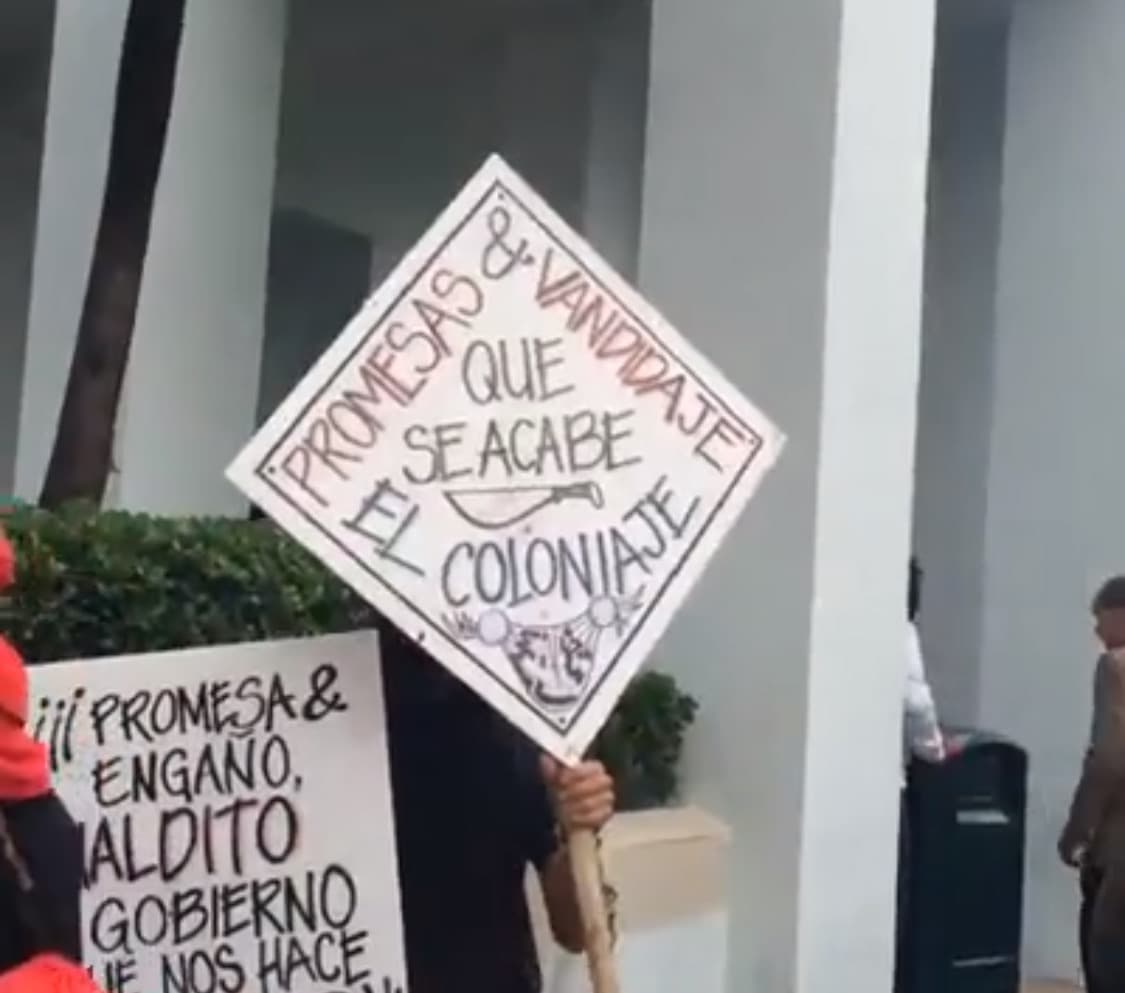 PROMESAS & VANDIDAJE
QUE
SE ACABE
EL COLONIAJE
¡¡¡ PROMESA &
ENGAÑO,
MALDITO
GOBIERNO
QUE NOS HACE